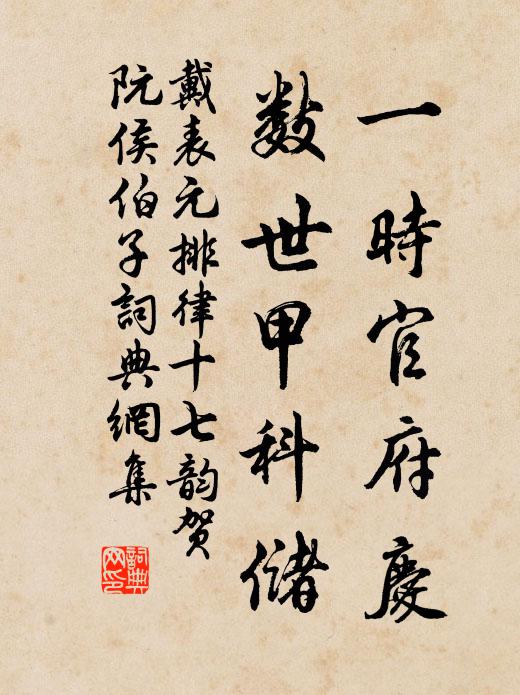 一時官府慶
數世甲科儲
戴表元排律十七韵賀
阮侯伯子詞典網集
詞典网印